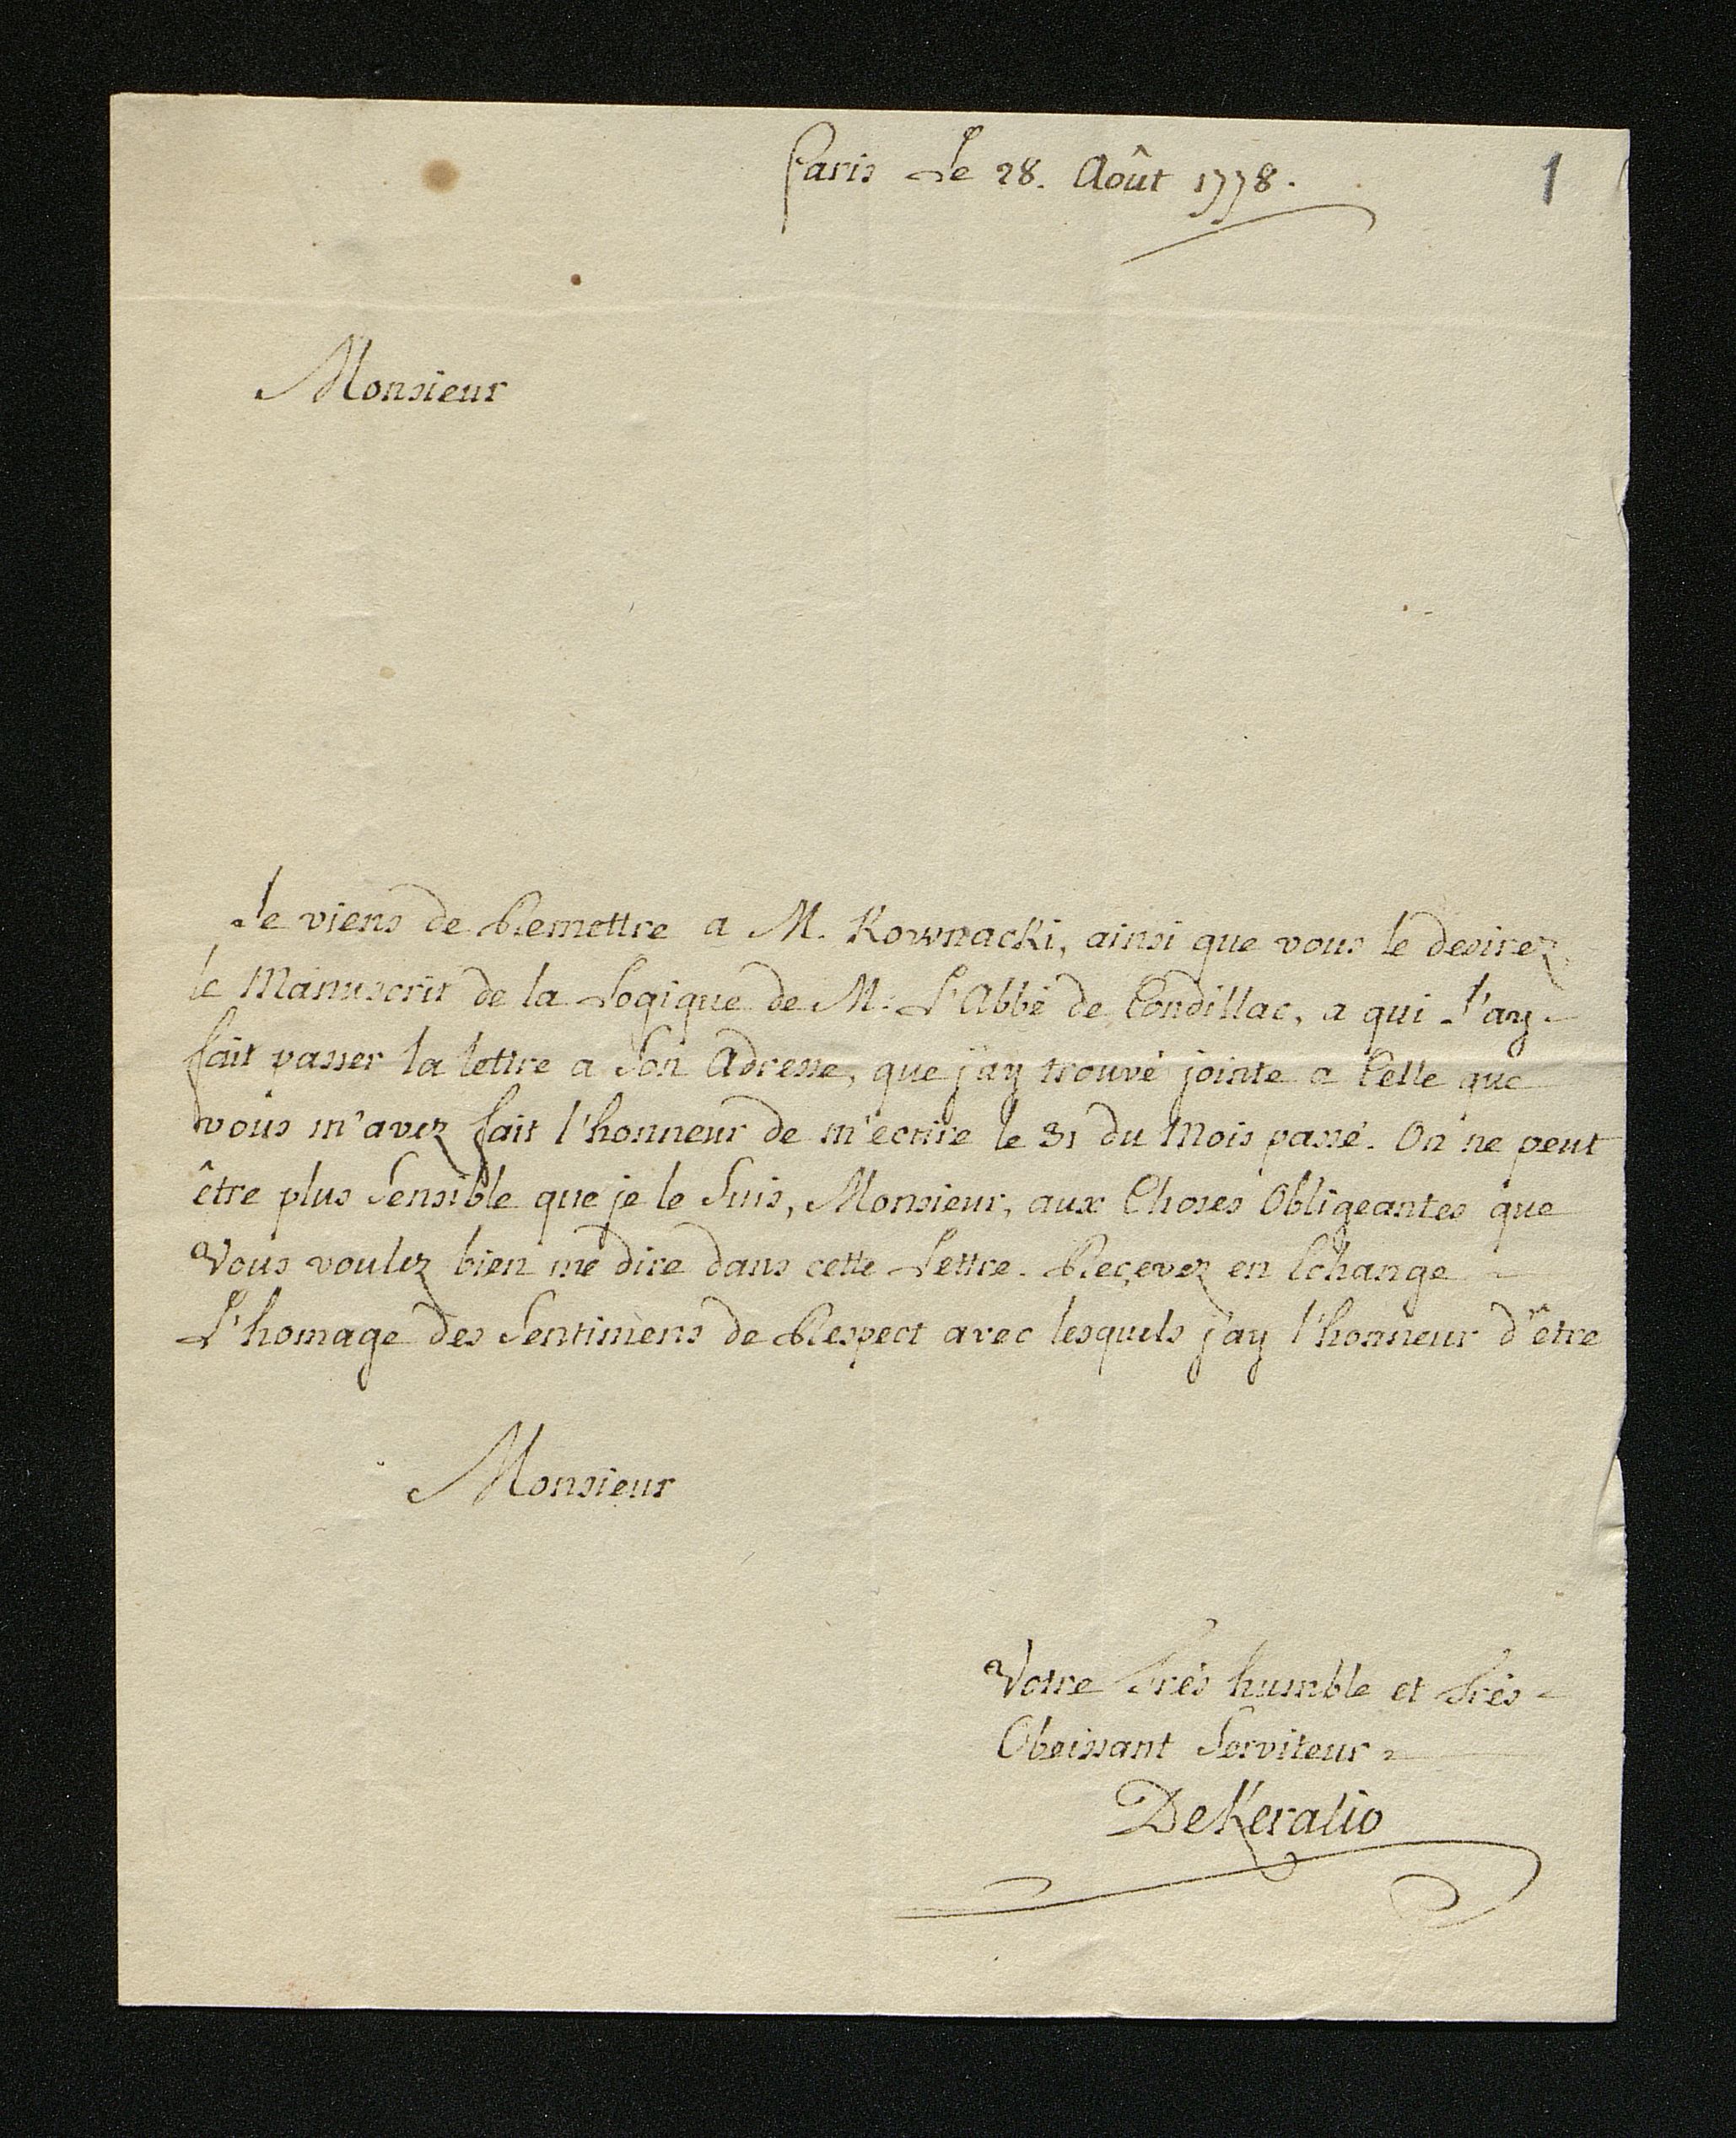 Paris Le 28. Aôut 1778.
1
Monsieur
Je viens de Remettre a M. Kownacki, ainsi que vous le desirez
le Manuscrit de la Logique de M. L'Abbé de Condillac, a qui J'ay
fait passer la lettre a Son Adresse, que j'ay trouvé jointe a Celle que
vous m'avez fait l'honneur de m'ecrire le 31 du Mois passé. On ne peut
être plus Sensible que je le Suis, Monsieur, aux Choses Obligeantes que
Vous voulez bien me dire dans cette Lettre. Reçevez en Echange
L'homage des Sentimens de Respect avec lesquels j'ay l'honneur d'être
Monsieur
Votre Très humble et Très
Obeissant Serviteur
DeKeralio